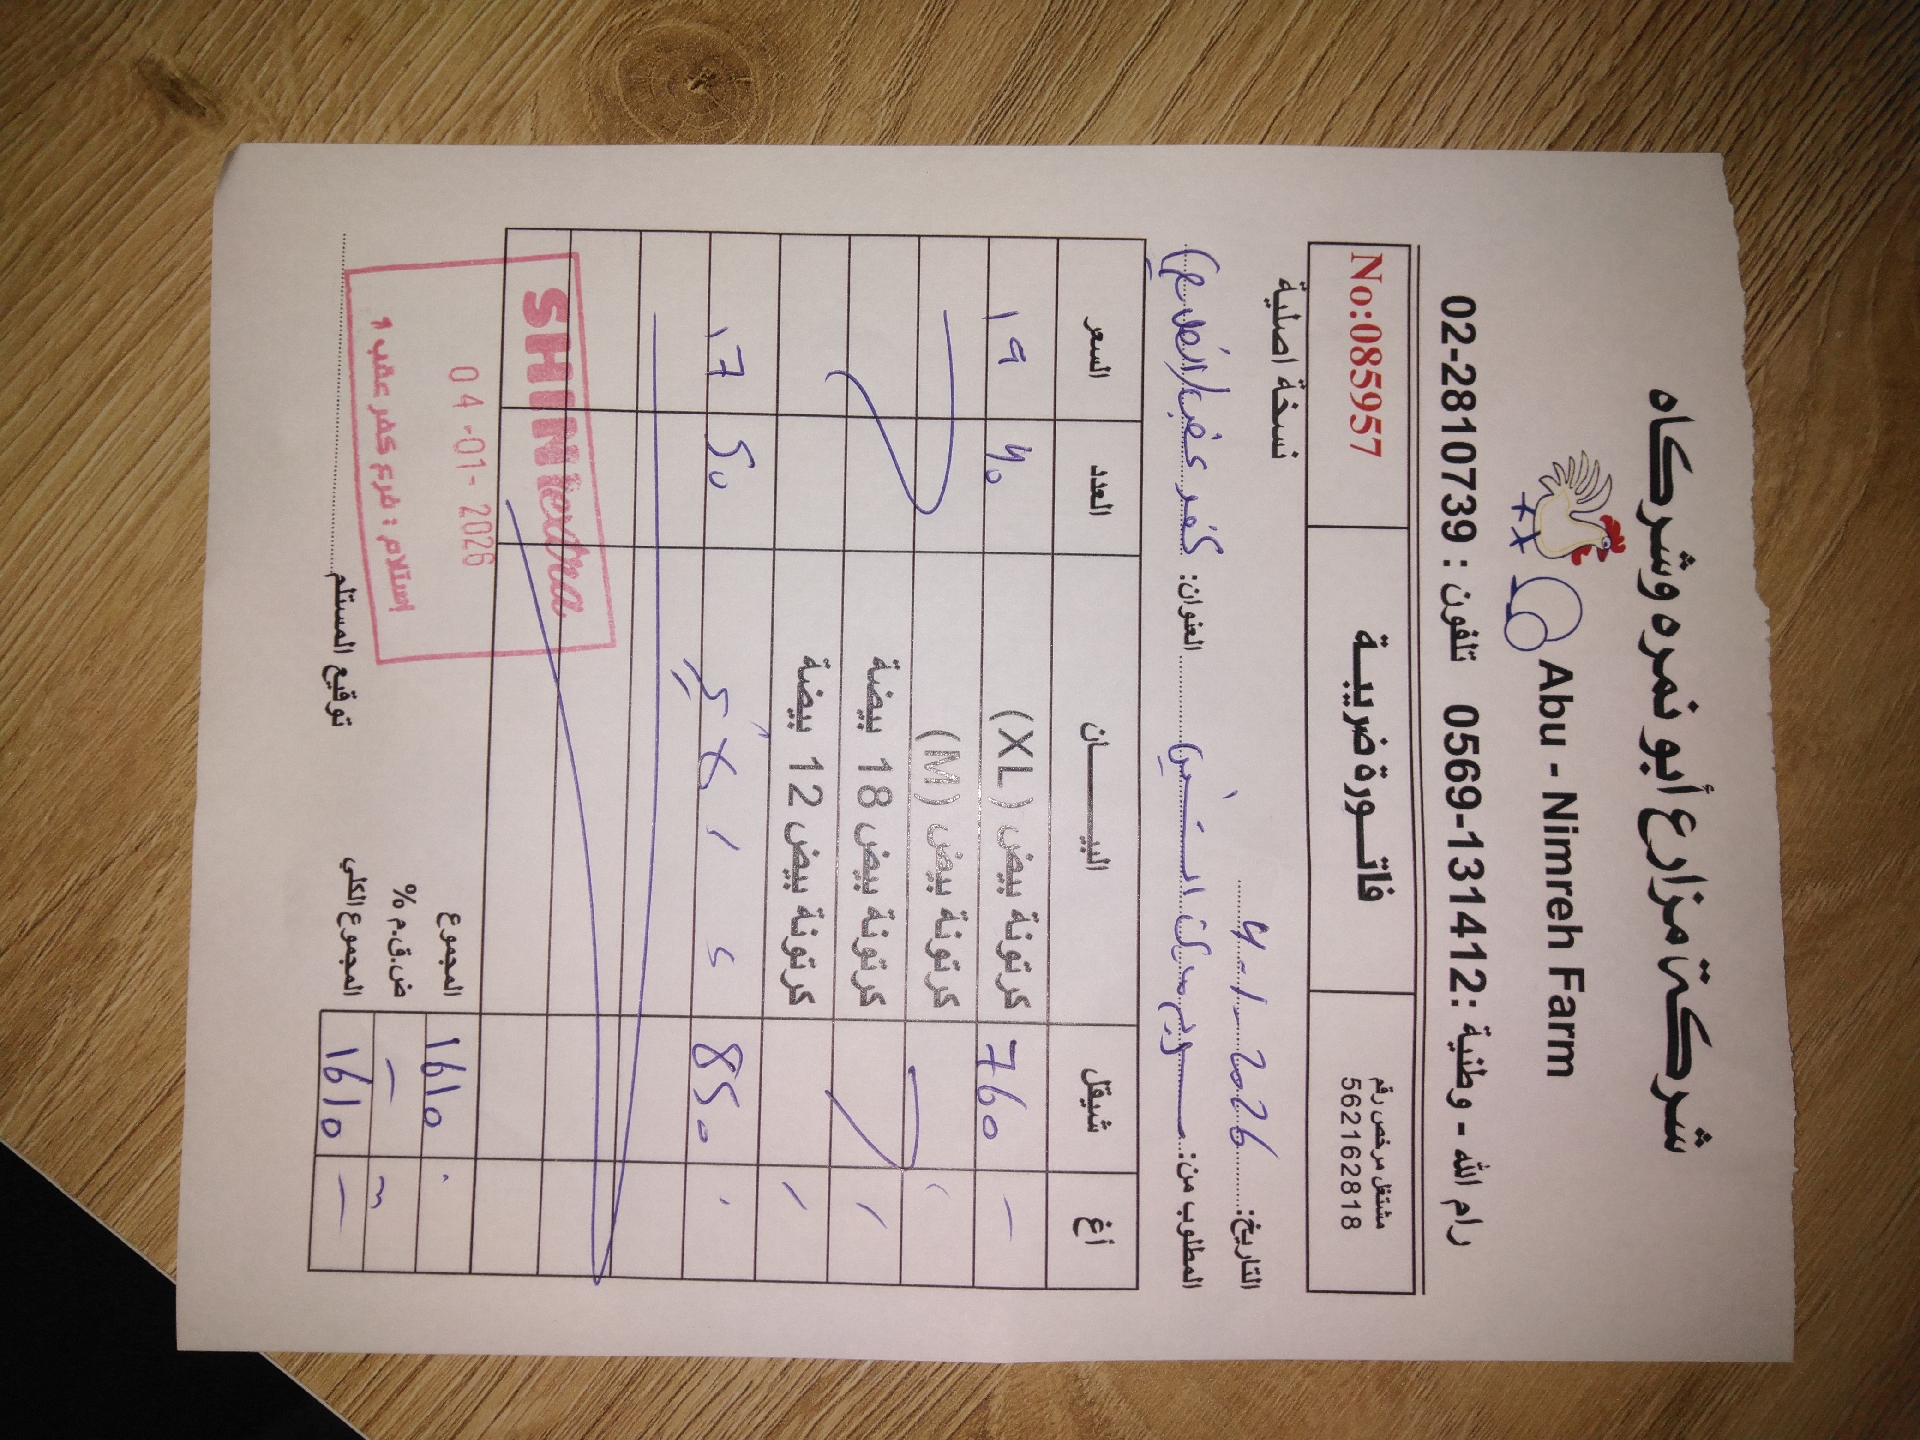 شركة مزارع أبو نمره وشركاه
Abu - Nimreh Farm
رام الله - وطنية : 0569-131412 تلفون : 02-2810739
مشتغل مرخص رقم
562162818
فاتورة ضريبة
No:085957
نسخة اصلية
التاريخ: 4-1-2026
المطلوب من: العنوان: كفر عقب
أغ شيقل البيان العدد السعر
- 760 كرتونة بيض (XL) 40 19
كرتونة بيض (M)
كرتونة بيض 18 بيضة
كرتونة بيض 12 بيضة
850 50 17
المجموع 1610
ض.ق.م %
المجموع الكلي 1610 -
توقيع المستلم
SHINI extra
04-01-2026
إستلام : فرع كفر عقب 1